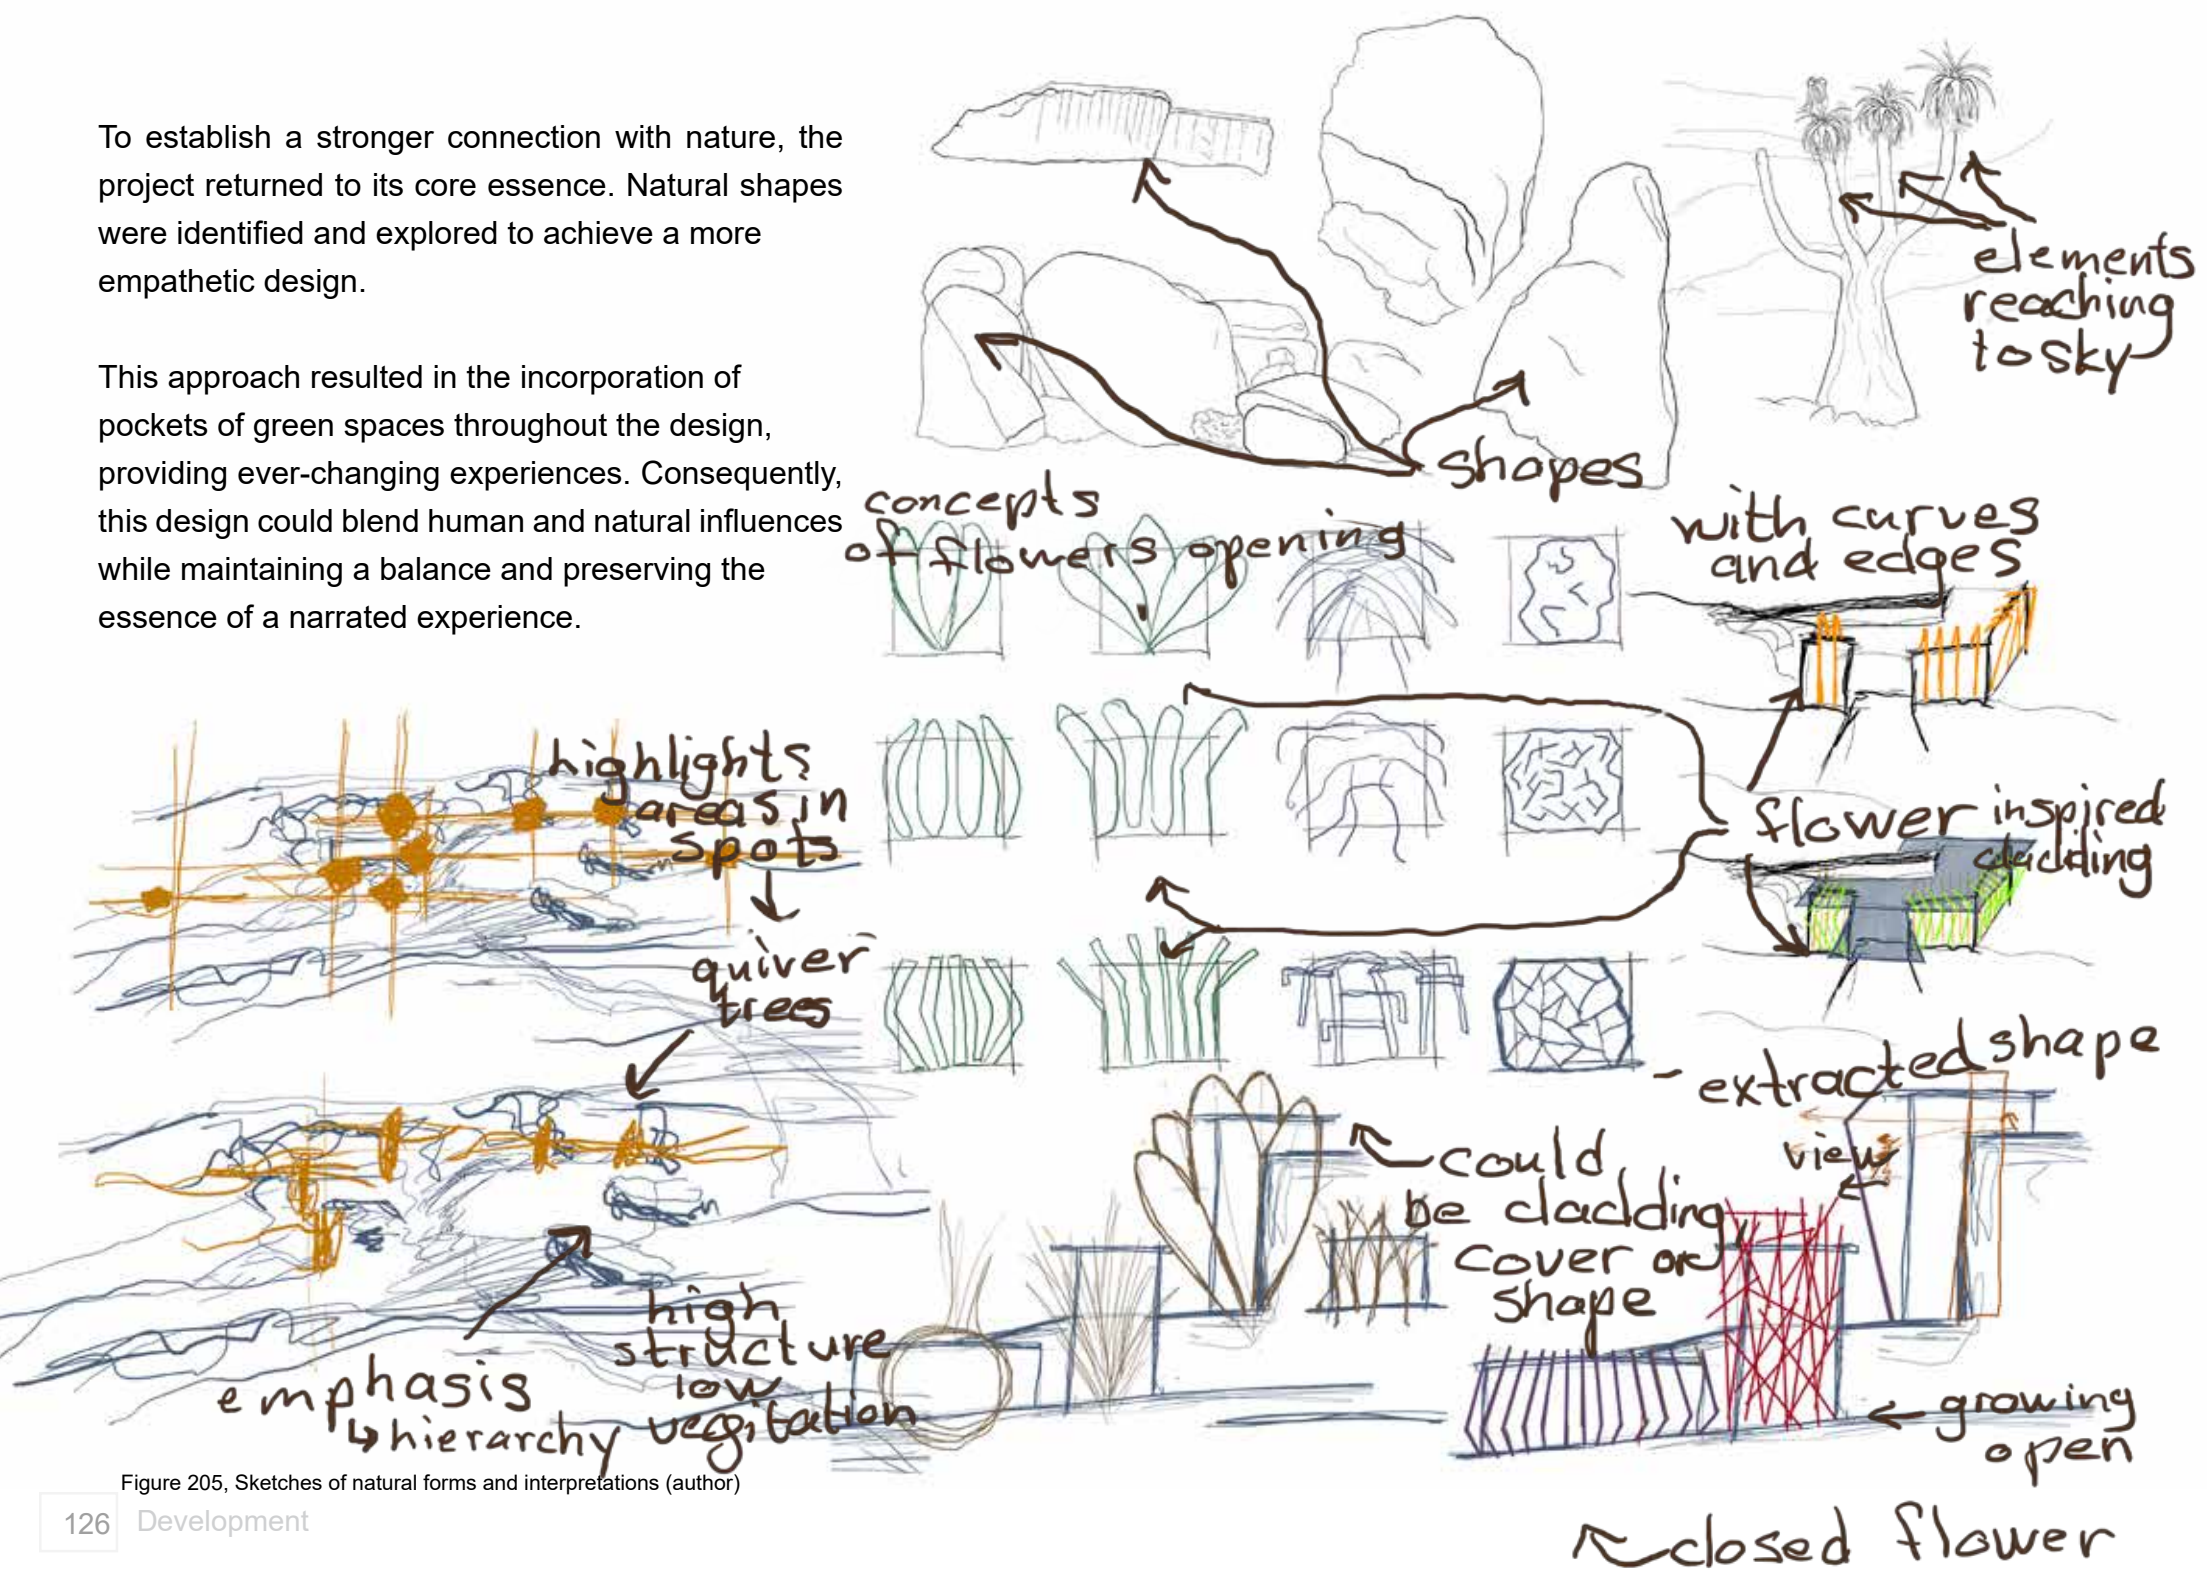 To establish a stronger connection with nature, the
project returned to its core essence. Natural shapes
were identified and explored to achieve a more
empathetic design.
This approach resulted in the incorporation of
pockets of green spaces throughout the design,
providing ever-changing experiences. Consequently,
this design could blend human and natural influences
while maintaining a balance and preserving the
essence of a narrated experience.
elements
reaching
to sky
shapes
concepts
of flowers opening
with curves
and edges
highlights
areas in
spots
quiver
trees
flower inspired
cladding
extracted shape
could
be cladding,
cover or
shape
view
high
structure
low
vegitation
emphasis
↳ hierarchy
growing
open
closed flower
Figure 205, Sketches of natural forms and interpretations (author)
126 Development